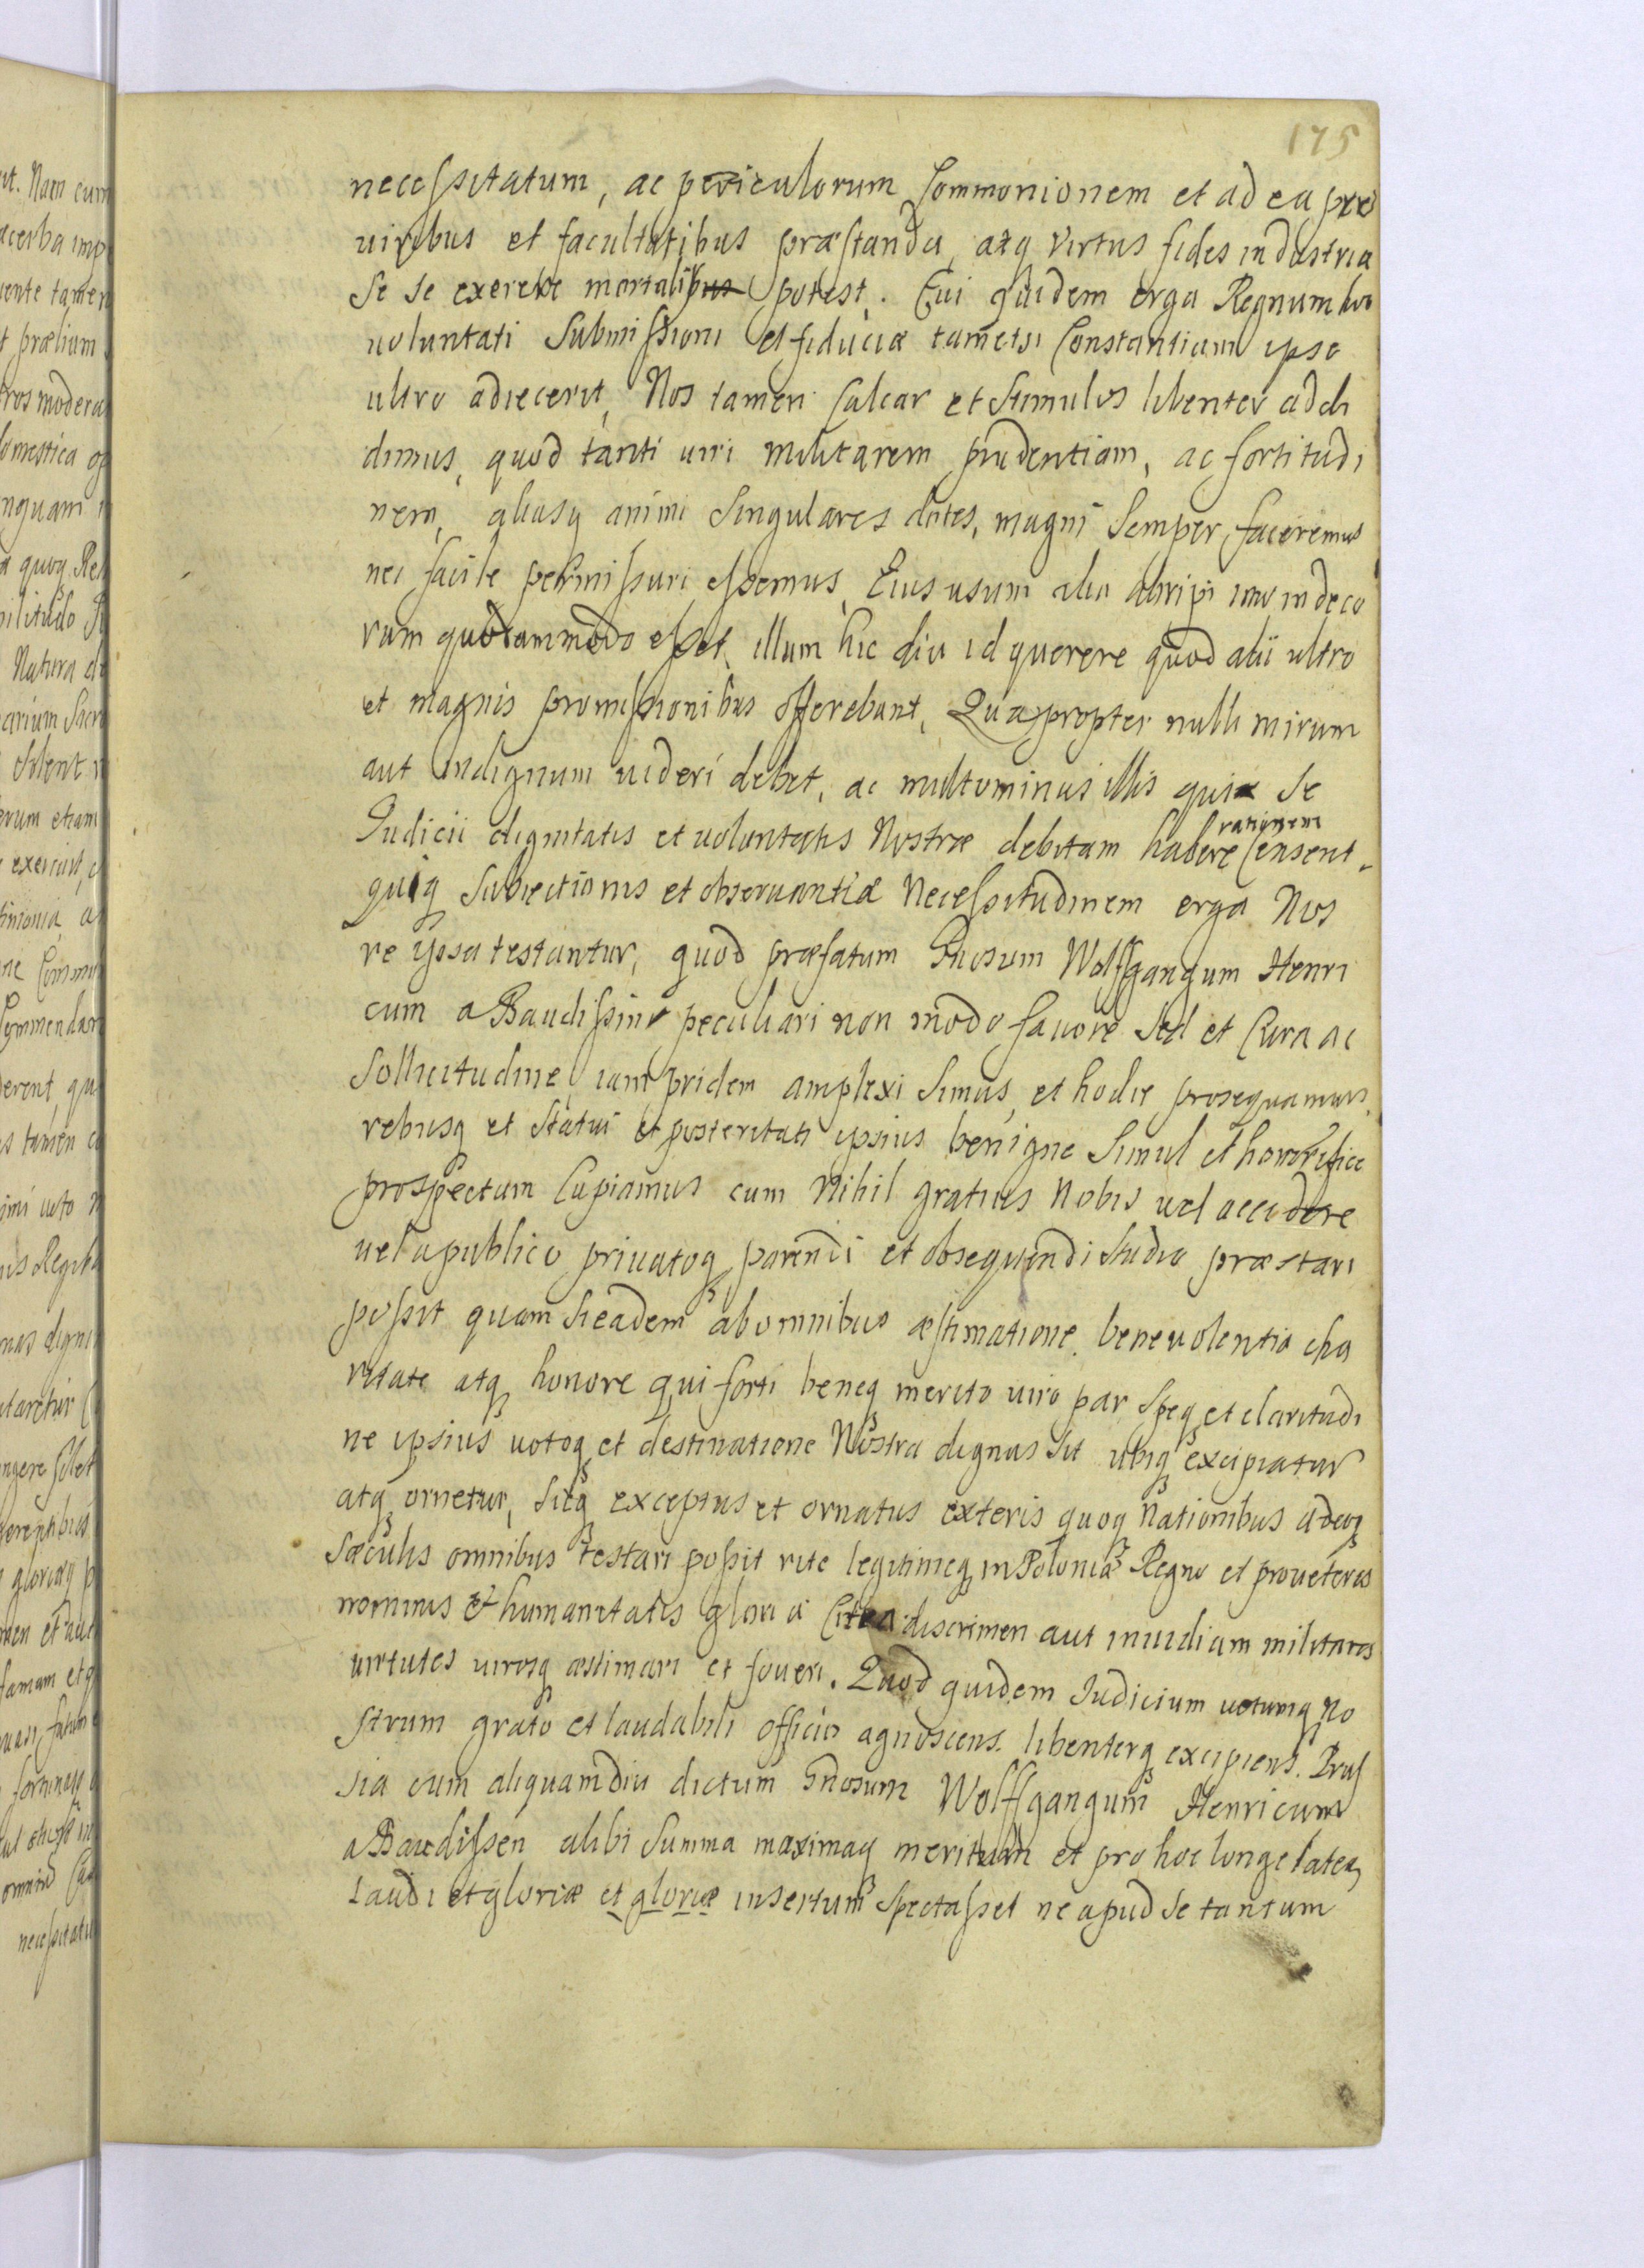 175
necessitatum, ac periculorum Commonionem et ad ea pro
uiribus et facultatibus præstanda, atq virtus fides industria
Se se exerere mortalibus potest. Cui quidem erga Regnum hoc
uoluntati Submissioni et fiduciæ tametsi Constantiam ipse
ultro adiecerit, Nos tamen Calcar et Stimulos libenter addi
dimus, quod tanti uiri militarem prudentiam, ac fortitudi
nem, aliasq animi Singulares dotes, magni Semper faceremus
nec facile permissuri essemus, Eius usum alio abripi imo indeco
rum quodammodo esset, illum hic diu id querere quod alii ultro
et magnis promissionibus offerebant, Quapropter nulli mirum
aut indignum uideri debet, ac multominus illis qui Se
Iudicii dignitatis et uoluntatis Nostræ debitam habere rationem Censent.
quiq Subiectionis et obseruantiæ Necessitudinem erga Nos
re ipsa testantur, quod præfatum Gnosum Wolffgangum Henri
cum a Baudissin peculiari non modo fauore Sed et Cura ac
Sollicitudine, iam pridem amplexi Simus, et hodie prosequamur,
rebusq et Statui et posteritati ipsius benigne Simul et honorifice
prospectum Cupiamus cum Nihil gratius Nobis uel accidere
uel a publico priuatoq parendi et obsequendi Studio præstari
possit quam Si eadem ab omnibus æstimatione, beneuolentia cha
ritate atq honore qui forti beneq merito uiro par Speq et claritudi
ne ipsius uotoq et destinatione Nostra dignus Sit ubiq excipiatur
atq ornetur, Sicq exceptus et ornatus exteris quoq Nationibus adeoq
Sæculis omnibus testari possit rite legitimeq in Poloniæ Regno et pro ueteris
nominis et humanitatis gloria Citra discrimen aut inuidiam militares
uirtutes uirosq æstimari et foueri. Quod quidem Iudicium uotumq No
strum grato et laudabili officio agnoscens, libenterq excipiens. Prus
sia cum aliquamdiu dictum Gnosum Wolffgangum Henricum
a Baudissen alibi Summa maximaq meritum et pro hoc longe lateq
Laudi et gloriæ et gloriæ insertum Spectasset ne apud Se tantum